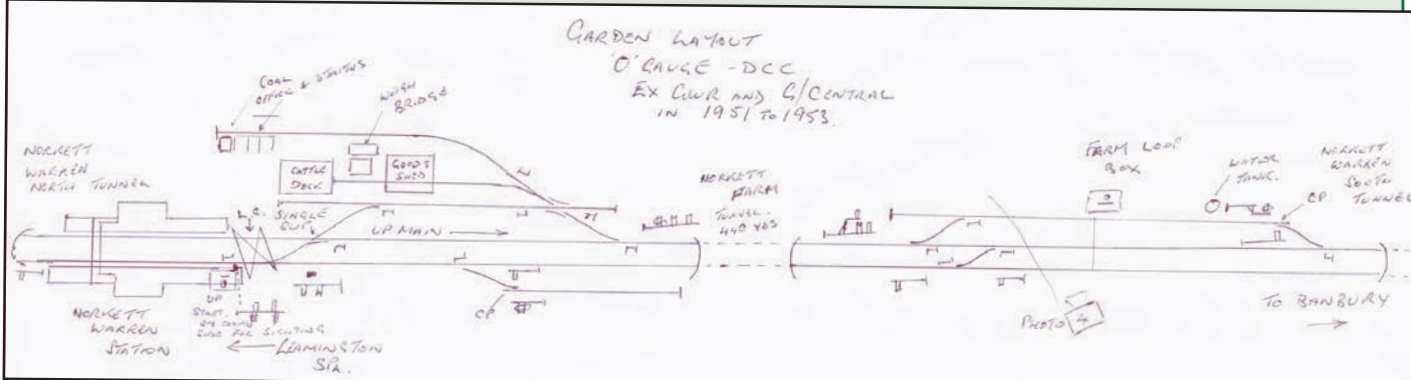 GARDEN LAYOUT
'O' GAUGE - DCC
EX GWR AND G/CENTRAL
IN 1951 TO 1953.
COAL
OFFICE & STAITHS
WEIGH
BRIDGE
NORKETT
WARREN
NORTH TUNNEL
CATTLE
DOCK
GOODS
SHED
SINGLE
SLIP
UP MAIN
NORKETT
FARM
TUNNEL.
440 YDS
FARM LOOP
BOX
WATER
TANK.
NORKETT
WARREN
SOUTH
TUNNEL
CP
CP
UP
START.
FOR SIGHTING
NORKETT
WARREN
STATION
LEAMINGTON
SPA.
PHOTO 4
TO BANBURY